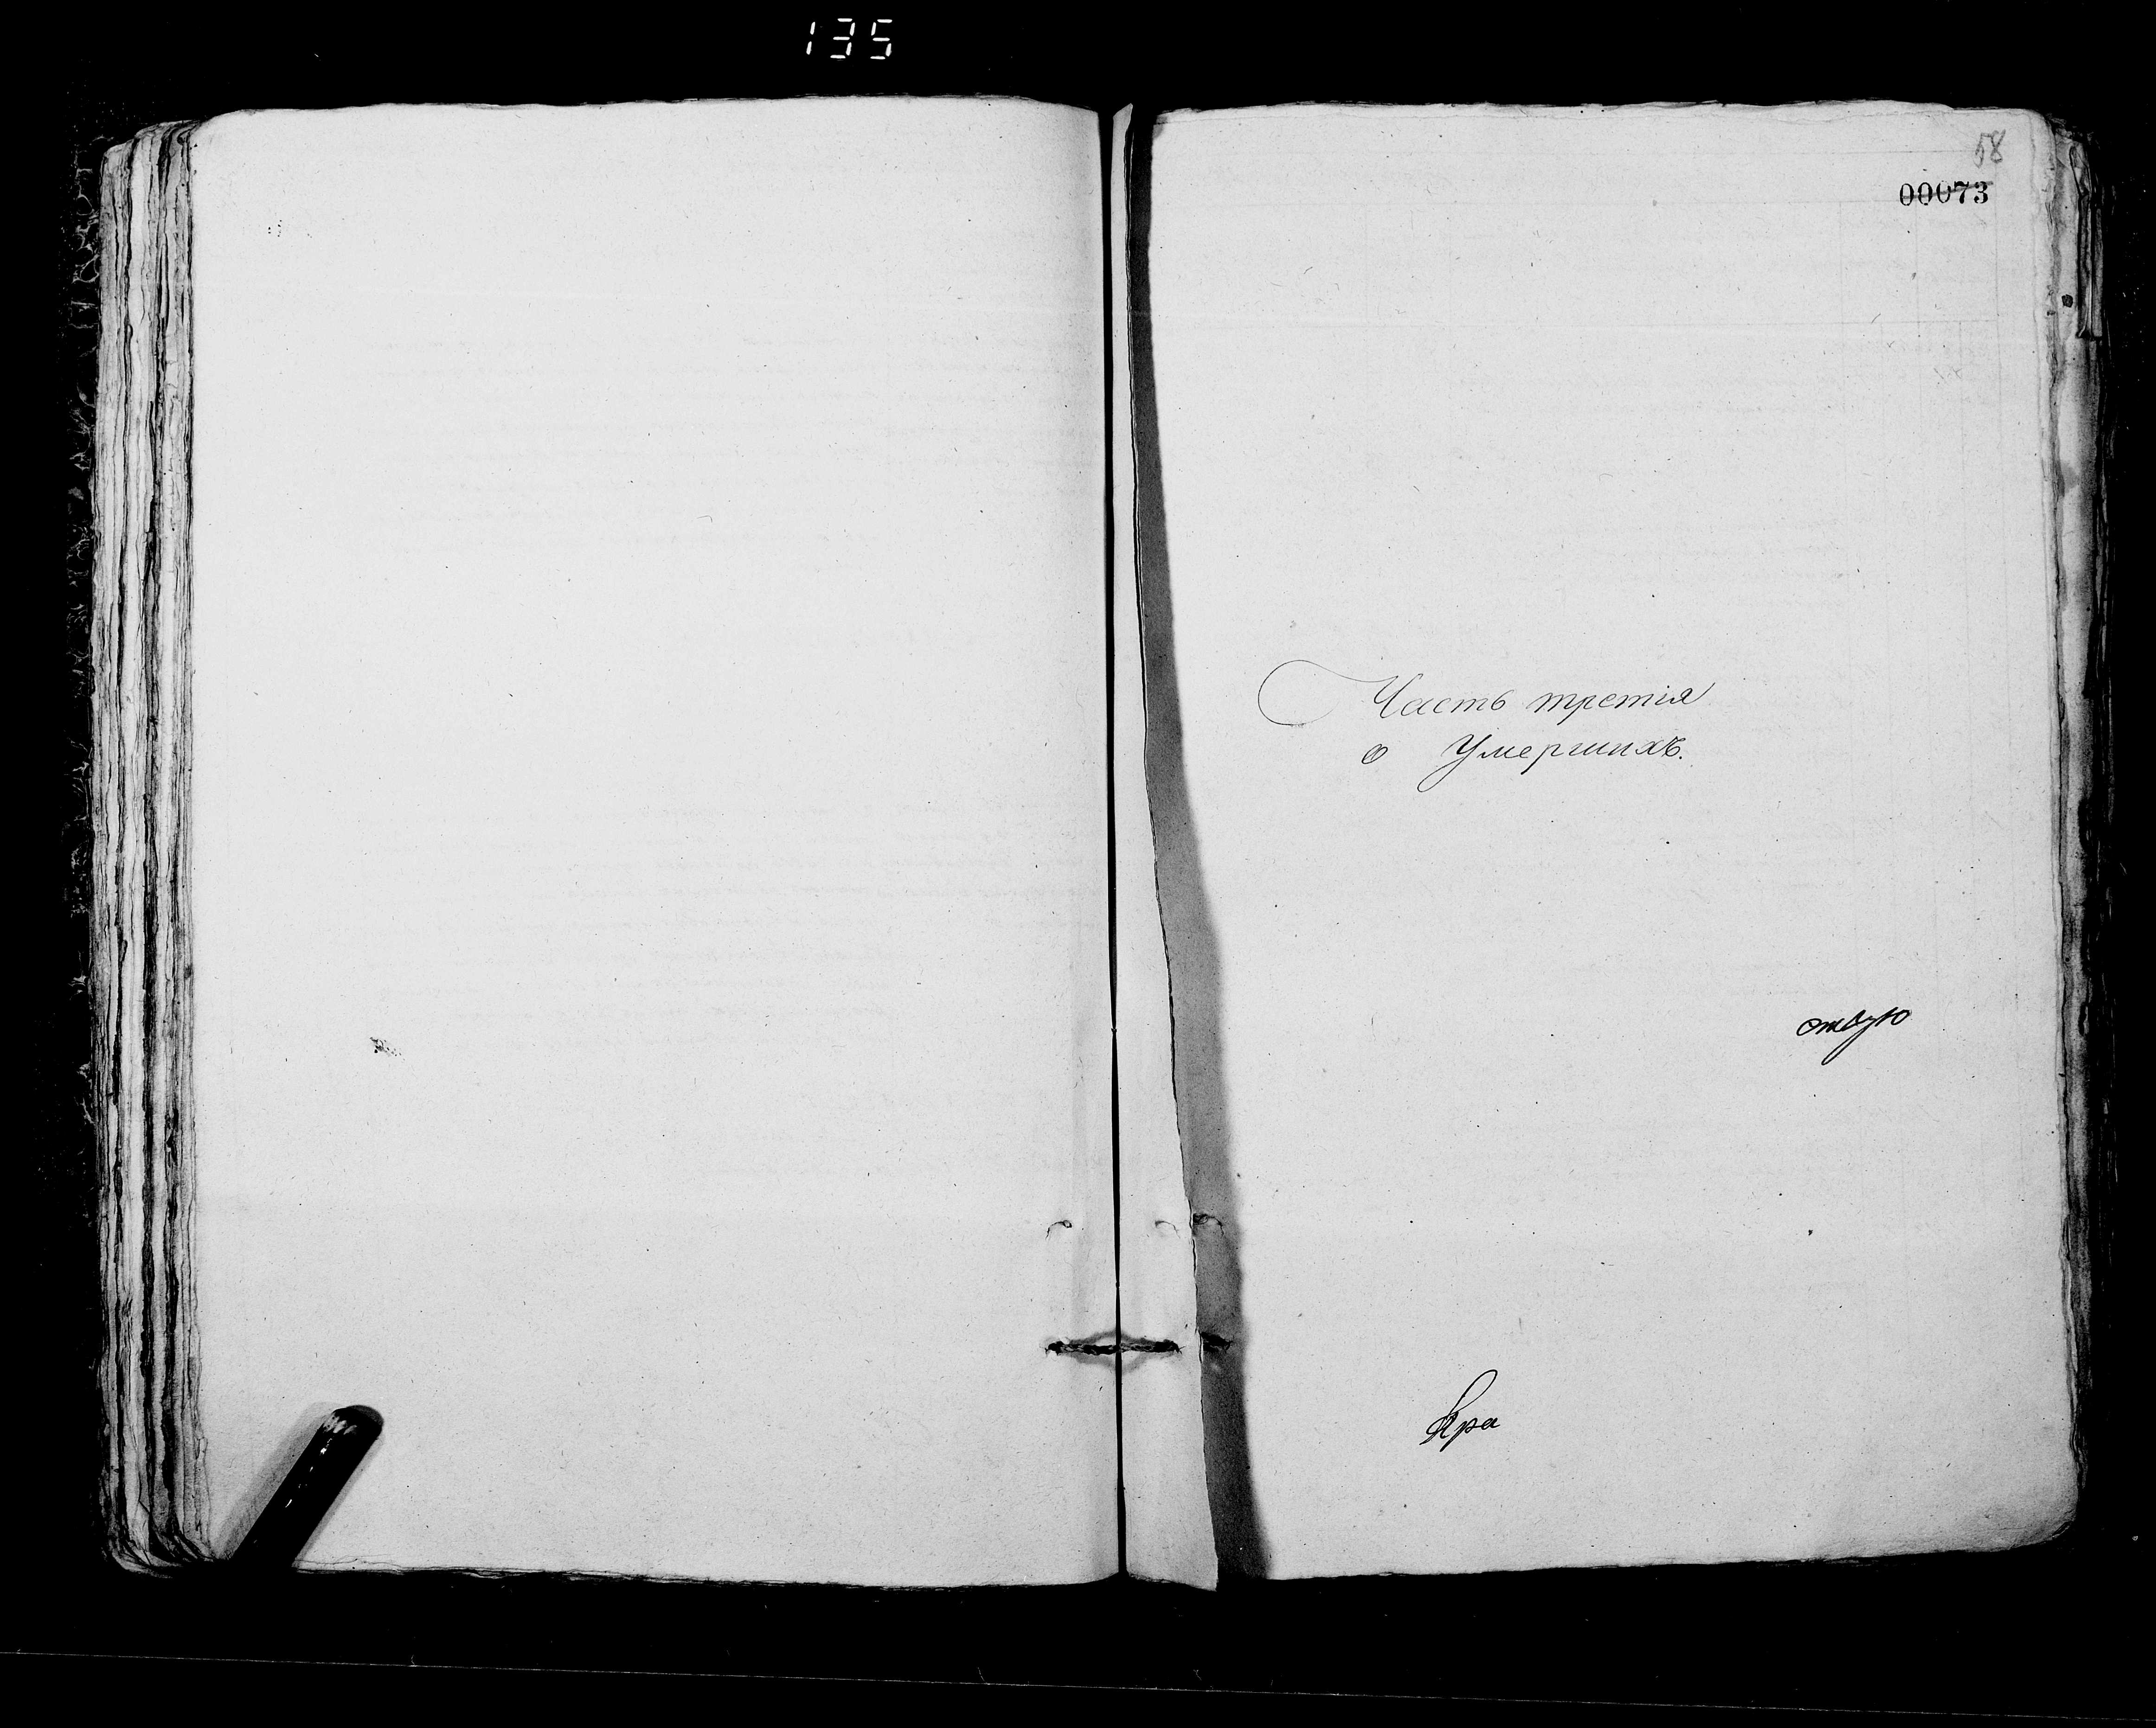 135
58
00073
Часть третія
о Умершихъ.
ствую
Кра